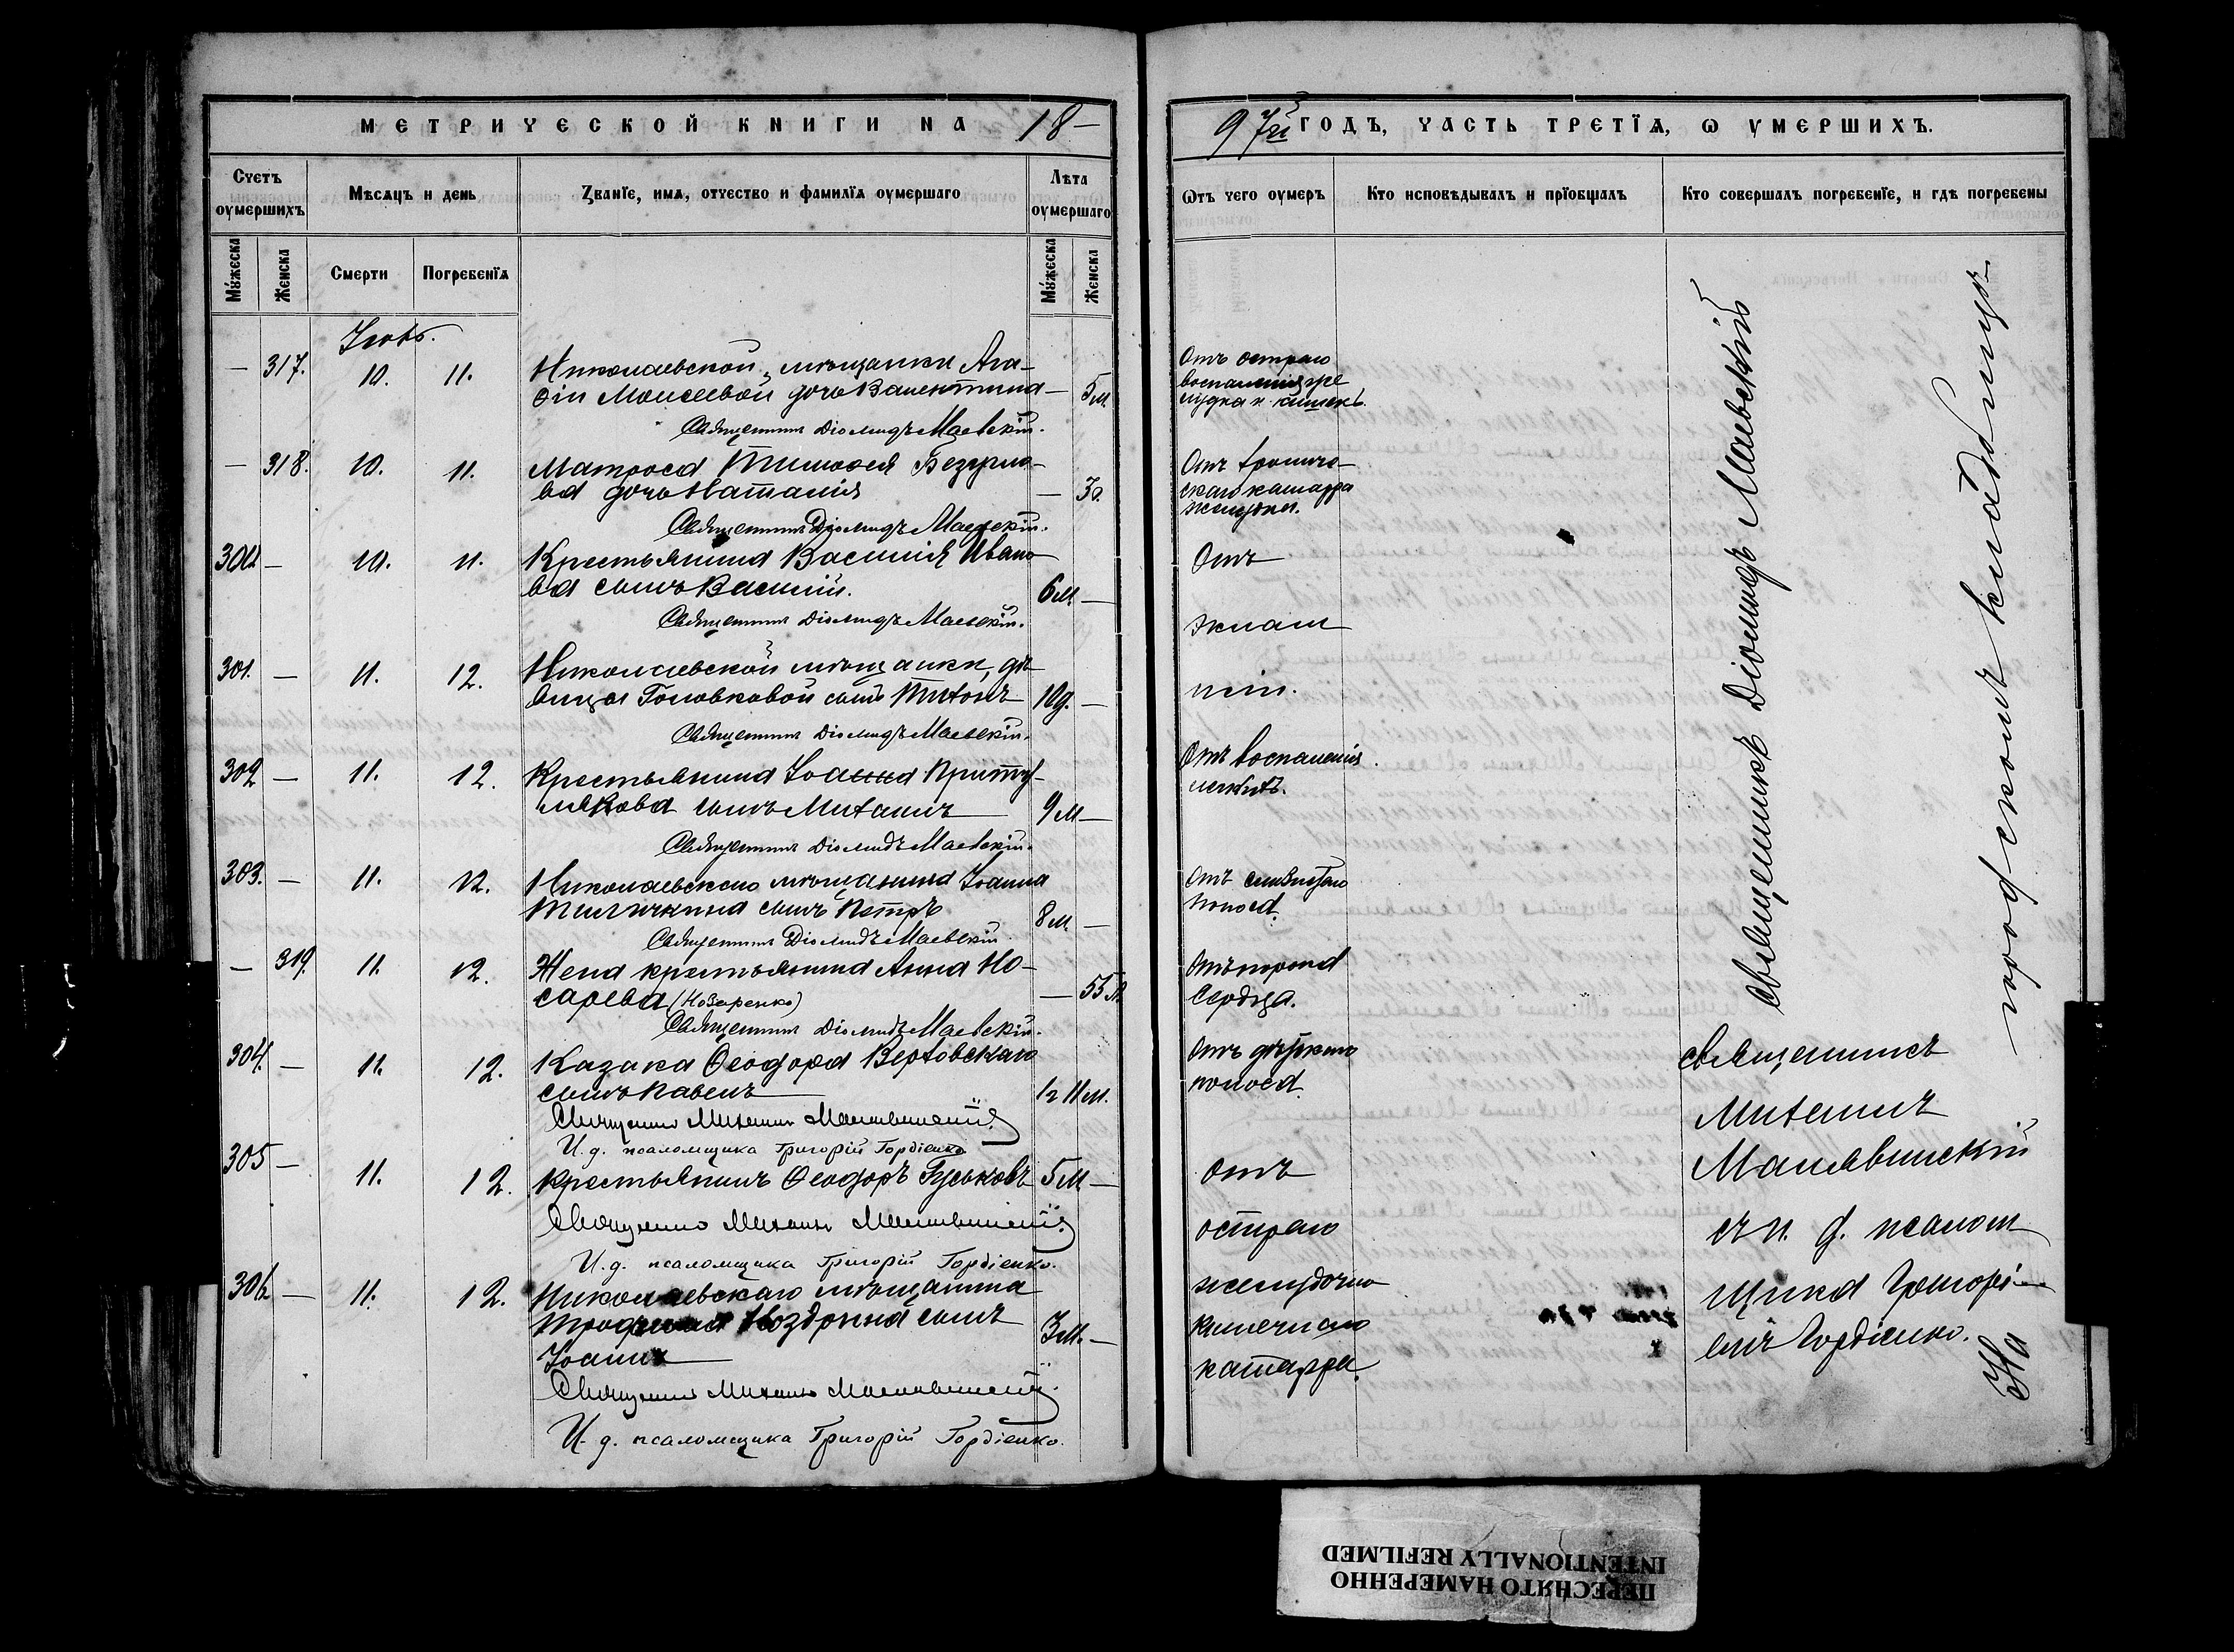 МЕТРИЧЕСКОЙ КНИГИ НА 18–
Счетъ оумершихъ
Мѣсяцъ и день
Званїе, имя, отчество и фамилїя оумершаго
Лѣта оумершаго
Мужеска
Женска
Смерти
Погребенїя
Мужеска
Женска
Іюль.
— 317. 10. 11. Николаевской мѣщанки Ага-
ѳіи Моисеевой дочь Валентина — 5 м.
Священникъ Діомидъ Маевскій.
— 318. 10. 11. Матроса Тимоѳея Безугло-
ва дочь Наталія —
Священникъ Діомидъ Маевскій.
— 10. 11. Крестьянина Василія Ивано-
ва сынъ Василій. 6 м. —
Священникъ Діомидъ Маевскій.
301. — 11. 12. Николаевской мѣщанки, дѣ-
вицы Головковой сынъ Тихонъ 10 д. —
Священникъ Діомидъ Маевскій.
302 — 11. 12. Крестьянина Іоанна Приту-
лякова сынъ Михаилъ 9 м —
Священникъ Діомидъ Маевскій.
303. — 11. 12. Николаевскаго мѣщанина Іоанна
сынъ Петръ 8 м. —
Священникъ Діомидъ Маевскій.
— 319. 11. 12. Жена крестьянина Анна Но-
сарева (Нозаренко) — 55 л.
Священникъ Діомидъ Маевскій.
304. — 11. 12. Казака Ѳеодора Верховскаго
сынъ Павелъ 11 м.
Священникъ Михаилъ Малявинскій
И. д. псаломщика Григорій Гордіенко
305 — 11. 12. Крестьянинъ Ѳеодоръ Гуськовъ 5 м —
Священникъ Михаилъ Малявинскій
И. д. псаломщика Григорій Гордіенко.
306 — 11. 12. Николаевскаго мѣщанина
Ноздрина сынъ 3 м. —
Іоаннъ
Священникъ Михаилъ Малявинскій
И. д. псаломщика Григорій Гордіенко.
97й ГОДЪ, ЧАСТЬ ТРЕТЇЯ, Ѡ УМЕРШИХЪ.
Ѡтъ чего оумеръ
Кто исповѣдывалъ и прїобщалъ
Кто совершалъ погребенїе, и гдѣ погребены
Отъ остраго
воспаленія же
лудка и кишекъ.
Отъ хрониче-
скаго катарра
желудка.
Отъ
эклам
псіи.
Отъ воспаленія
легкихъ.
Отъ слизистаго
поноса.
Отъ порока
сердца.
Отъ дѣтскаго
поноса.
Отъ
остраго
желудочно
кишечнаго
катарра.
Священникъ Діомидъ Маевскій
Священникъ
Михаилъ
Малявинскій
съ и. д. псалом
щика Григорі-
емъ Гордіенко.
На городскомъ кладбищѣ.
ПЕРЕСНЯТО НАМЕРЕННО
INTENTIONALLY REFILMED